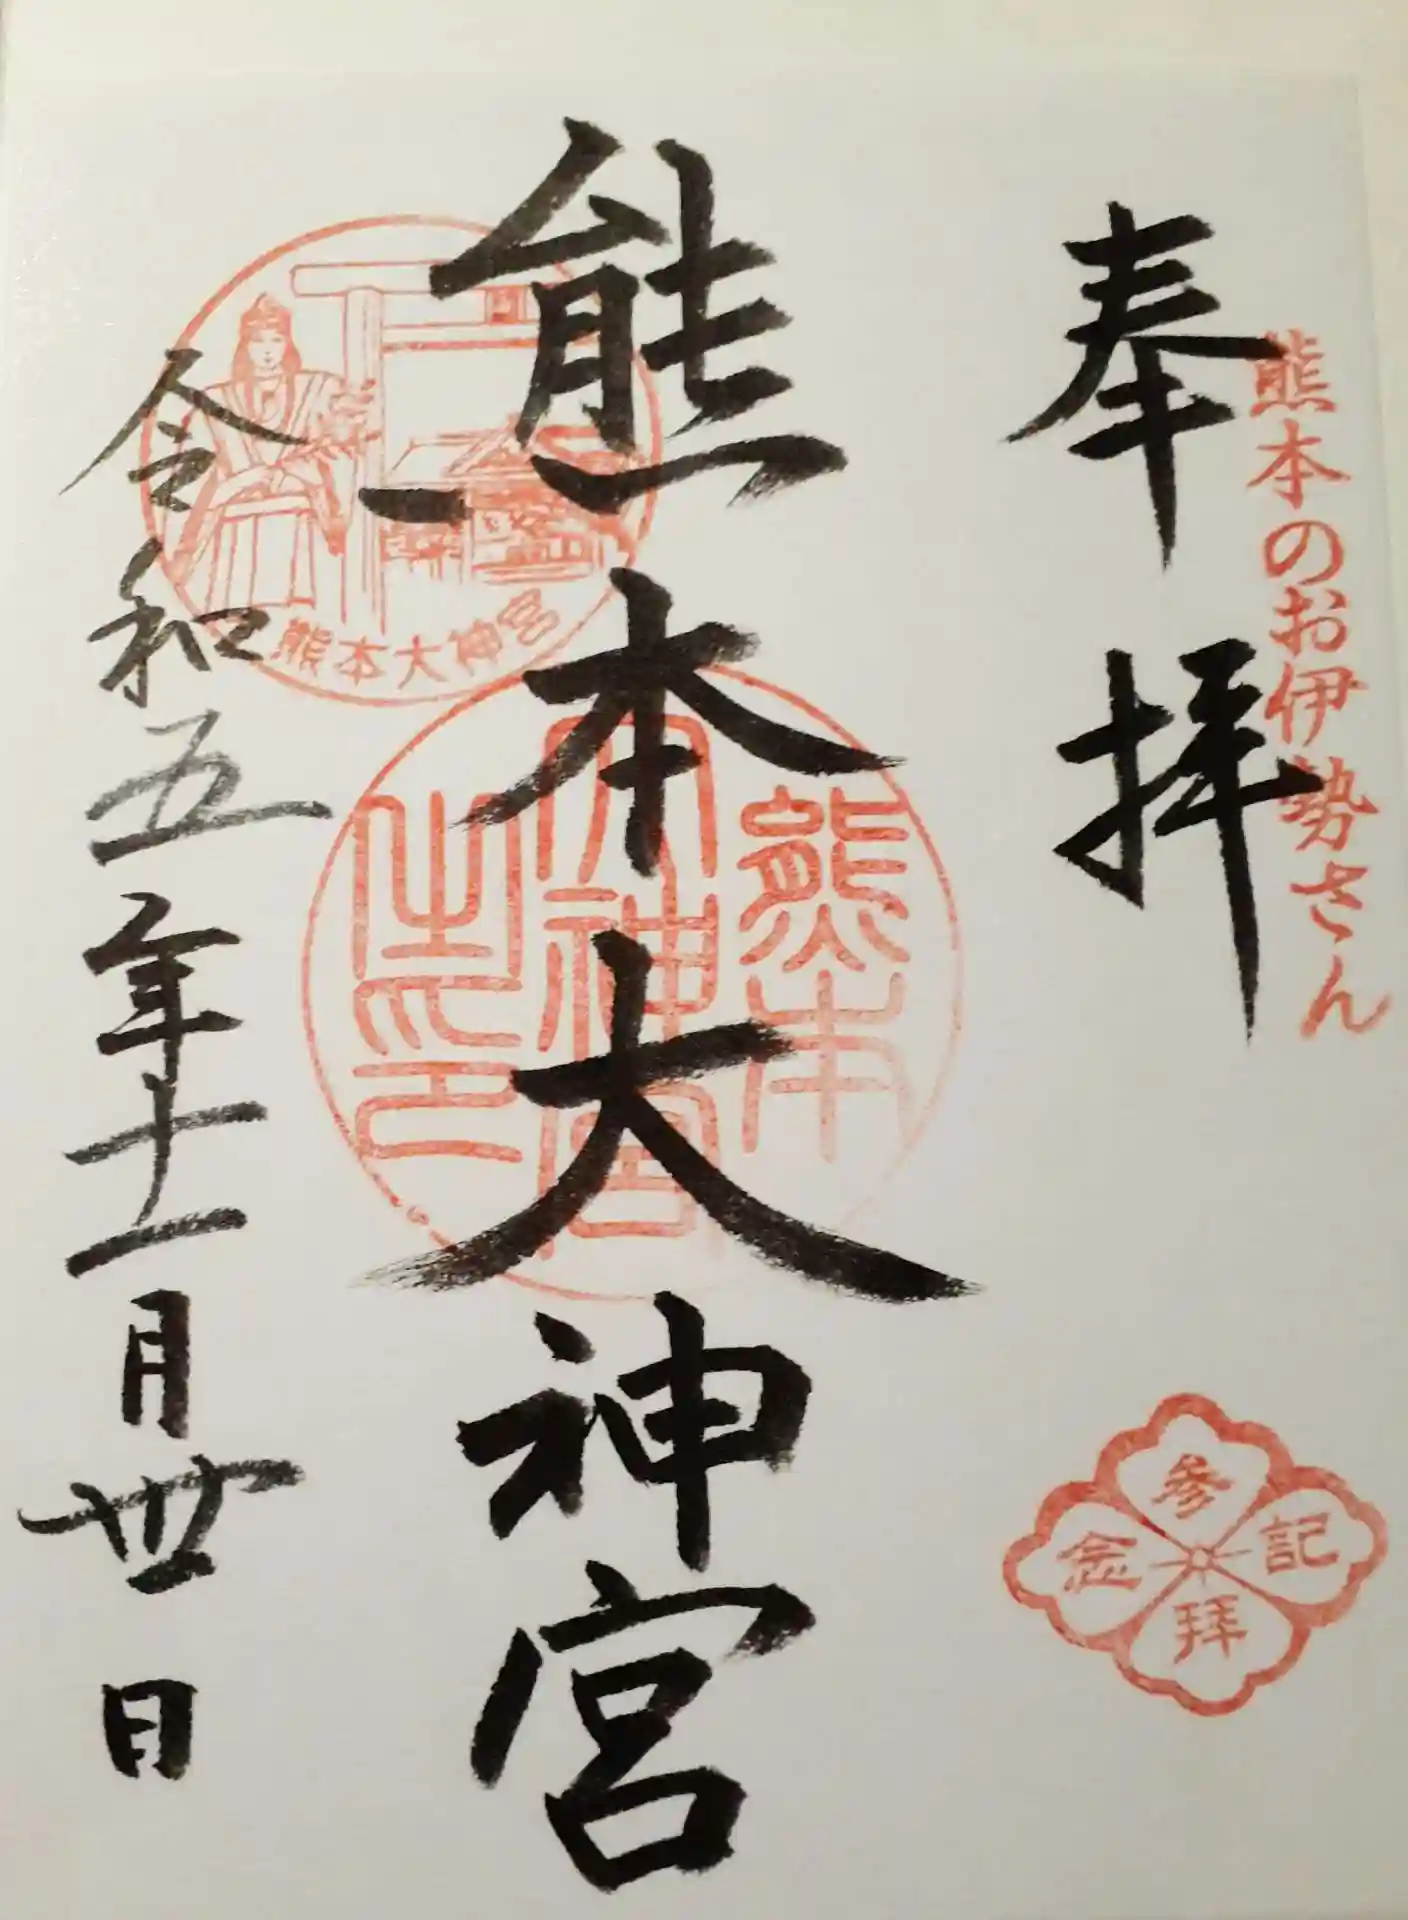 熊本のお伊勢さん
奉拝
参拝記念
熊本大神宮
熊本大神宮之印
熊本大神宮
令和五年十一月丗日